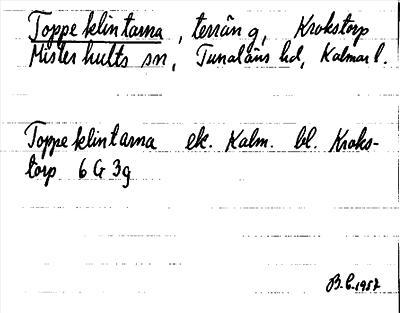 Toppeklintarna, terräng, Krokstorp
Misterhults sn, Tunaläns hd, Kalmar l.
Toppeklintarna ek. Kalm. bl. Kroks-
torp 6 G 3g
B.C. 1957